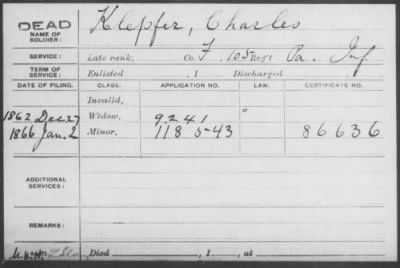 DEAD Klepfer, Charles
NAME OF SOLDIER:
SERVICE: Late rank, Co. F, 105 Reg't Pa. Inf
TERM OF SERVICE: Enlisted , 1 Discharged , 1
DATE OF FILING. CLASS. APPLICATION NO. LAW. CERTIFICATE NO.
Invalid,
1862 Dec 27 Widow, 9241
1866 Jan. 2 Minor, 118543 86636
ADDITIONAL SERVICES:
REMARKS:
Died , 1 , at